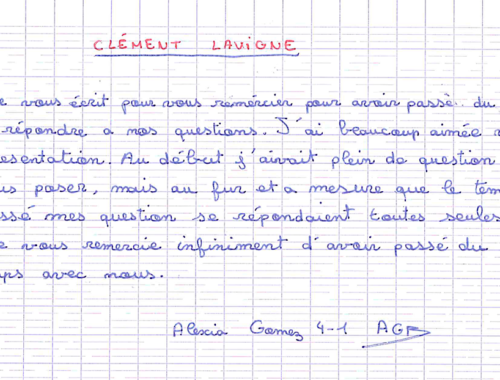 CLÉMENT LAVIGNE
e vous écrit pour vous remércier pour avoir passé du
répondre a nos questions. J'ai beaucoup aimée
esentation. Au début j'aivait plein de question
us poser, mais au fur et a mesure que le tem
ssé mes question se répondaient toutes seules
e vous remercie infiniment d'avoir passé du
ps avec nous.
Alexia Gomez 4-1 AGP